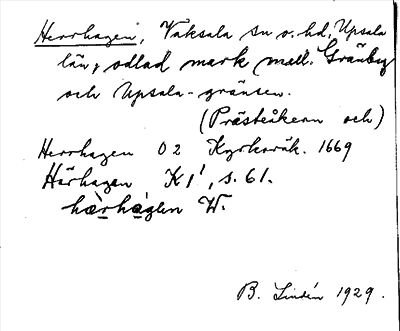 Herrhagen, Vaksala sn o. hd, Upsala
län, odlad mark mell. Gränby
och Upsala-gränsen.
(Prästeåkern och)
Herrhagen O2 Kyrkoräk. 1669
Härhagen K1¹, s. 61.
hærhagen W.
B. Lindén 1929.